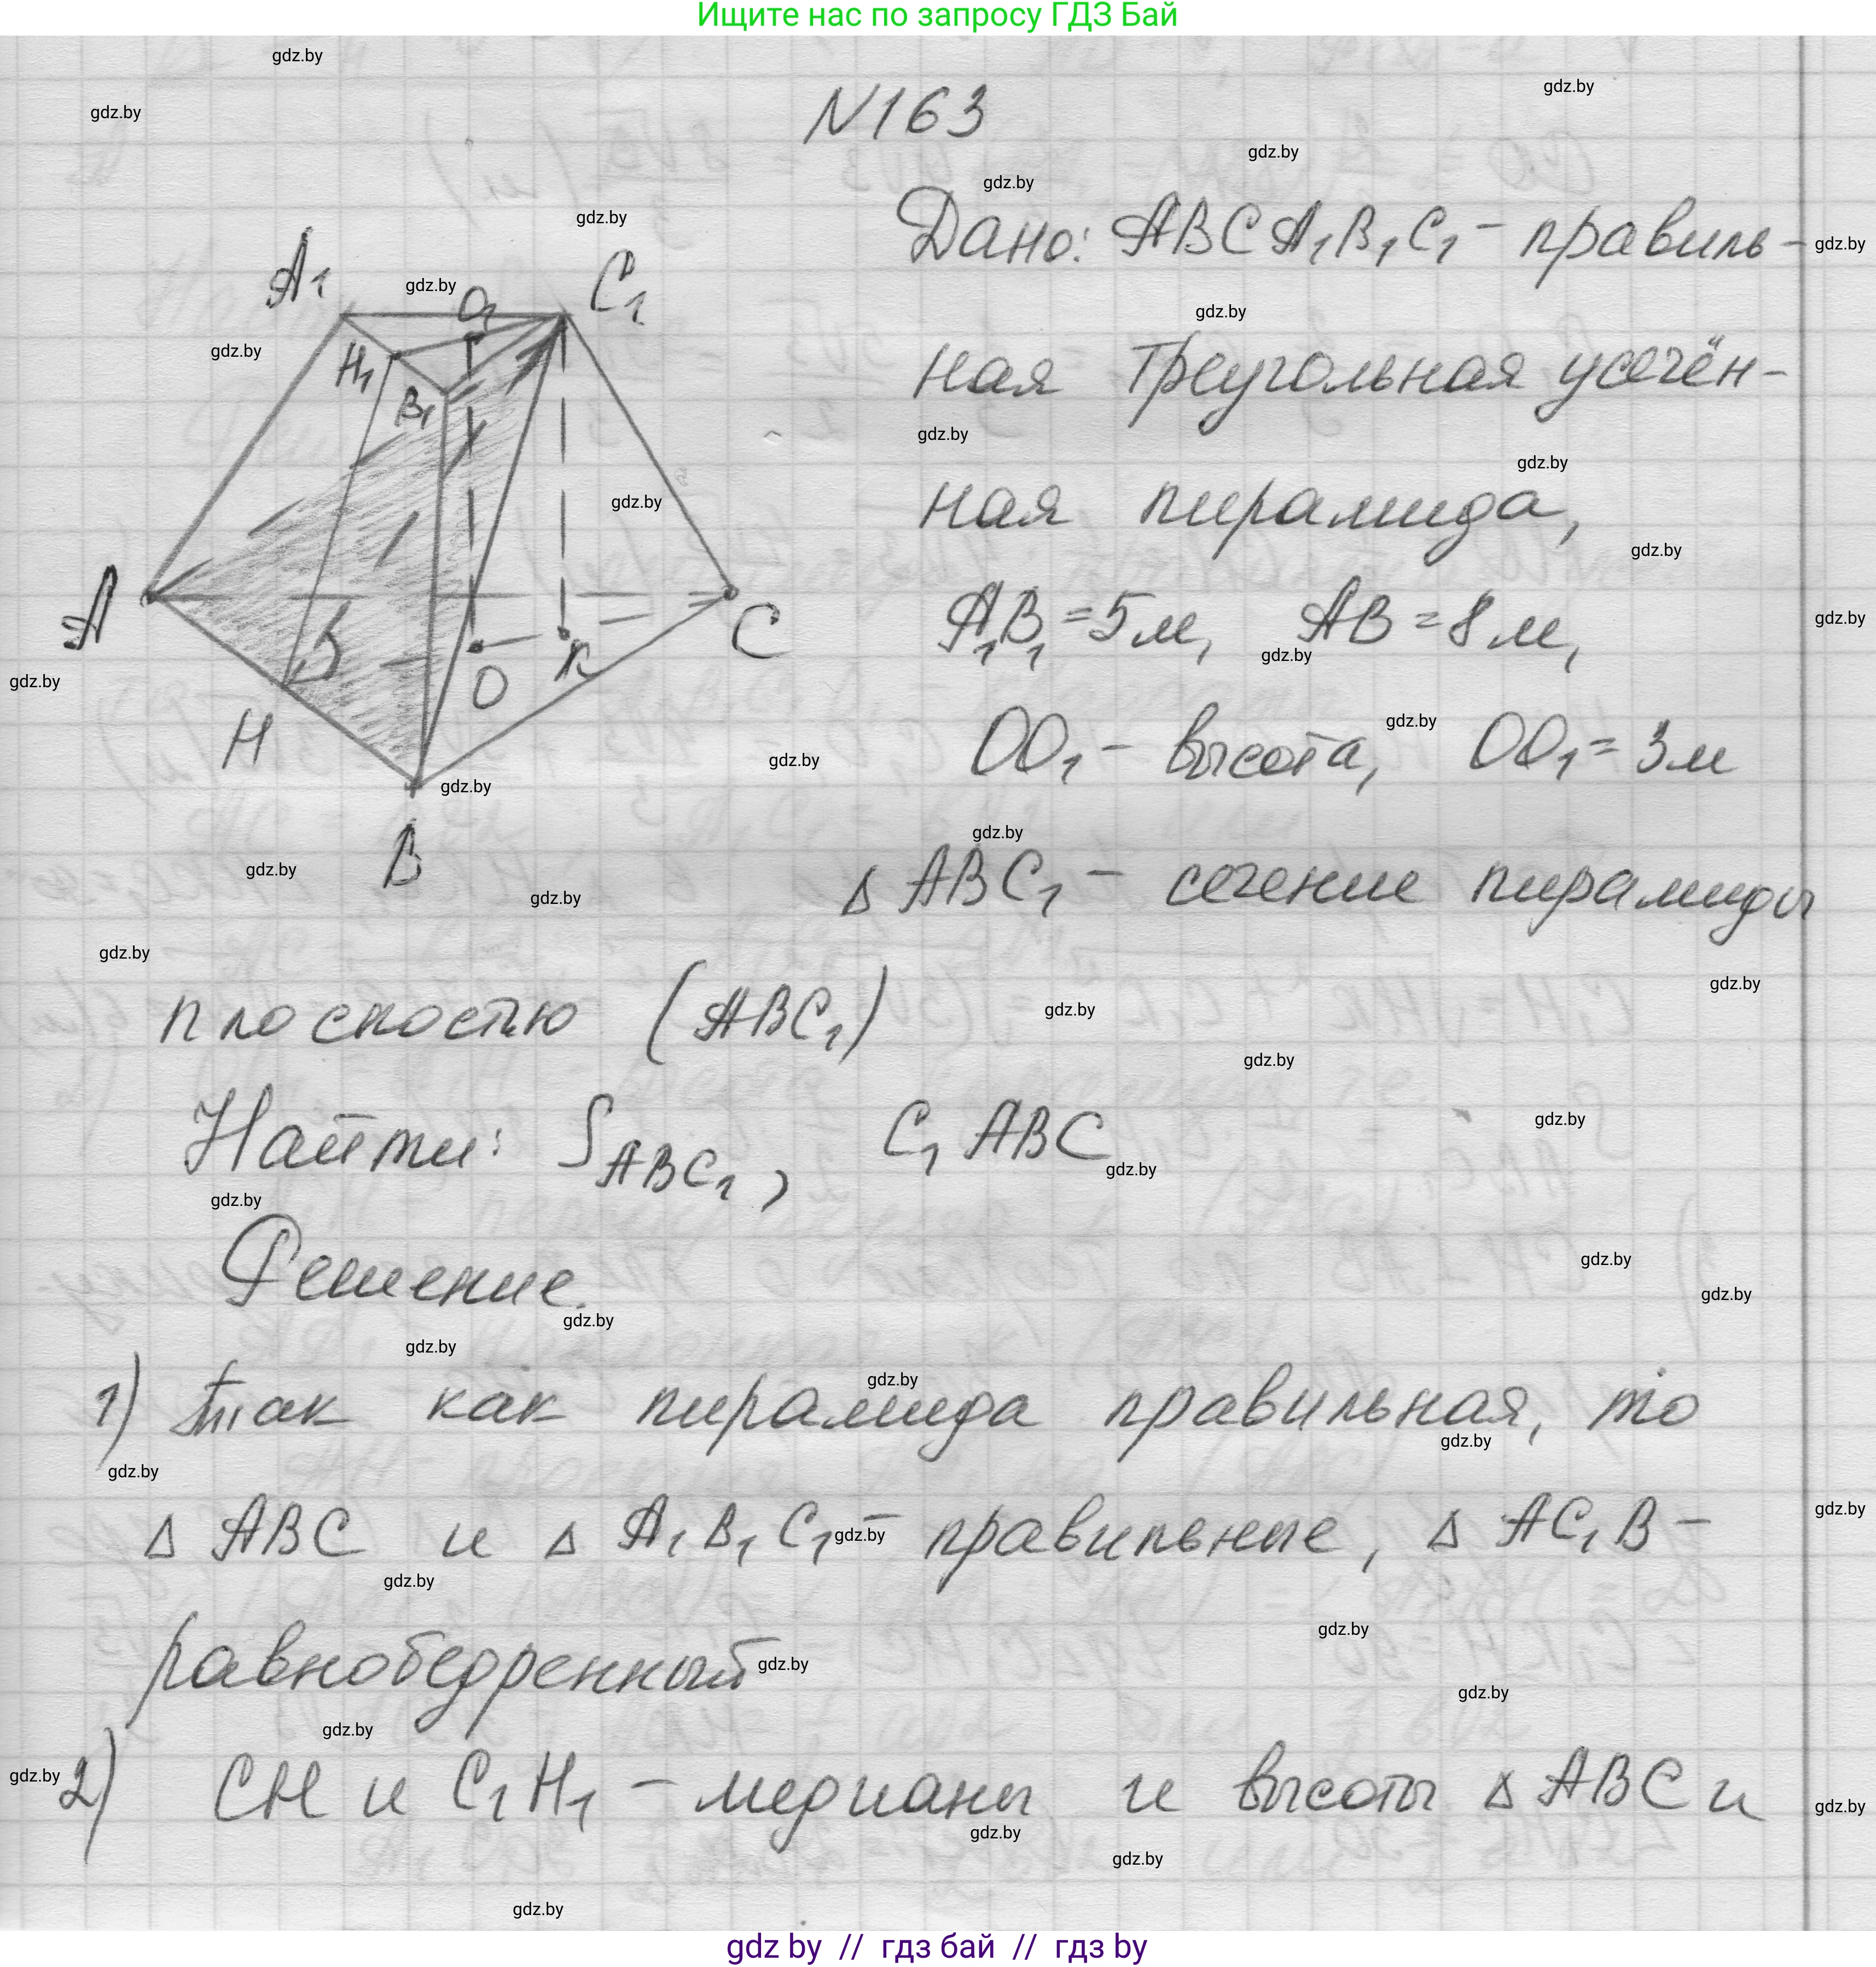 Ищите нас по запросу ГДЗ Бай
N163
Дано: ABCA₁B₁C₁ - правиль-
ная треугольная усечён-
ная пирамида,
A₁B₁ = 5 м, AB = 8 м,
OO₁ - высота, OO₁ = 3 м
Δ ABC₁ - сечение пирамиды
плоскостью (ABC₁)
Найти: S ABC₁, C₁ABC
Решение.
1) так как пирамида правильная, то
Δ ABC и Δ A₁B₁C₁ - правильные, Δ AC₁B -
равнобедренный
2) CH и C₁H₁ - медианы и высоты Δ ABC и
A₁
O₁
C₁
H₁
B₁
A
C
O
K
H
B
gdz.by
gdz by // гдз бай // гдз by